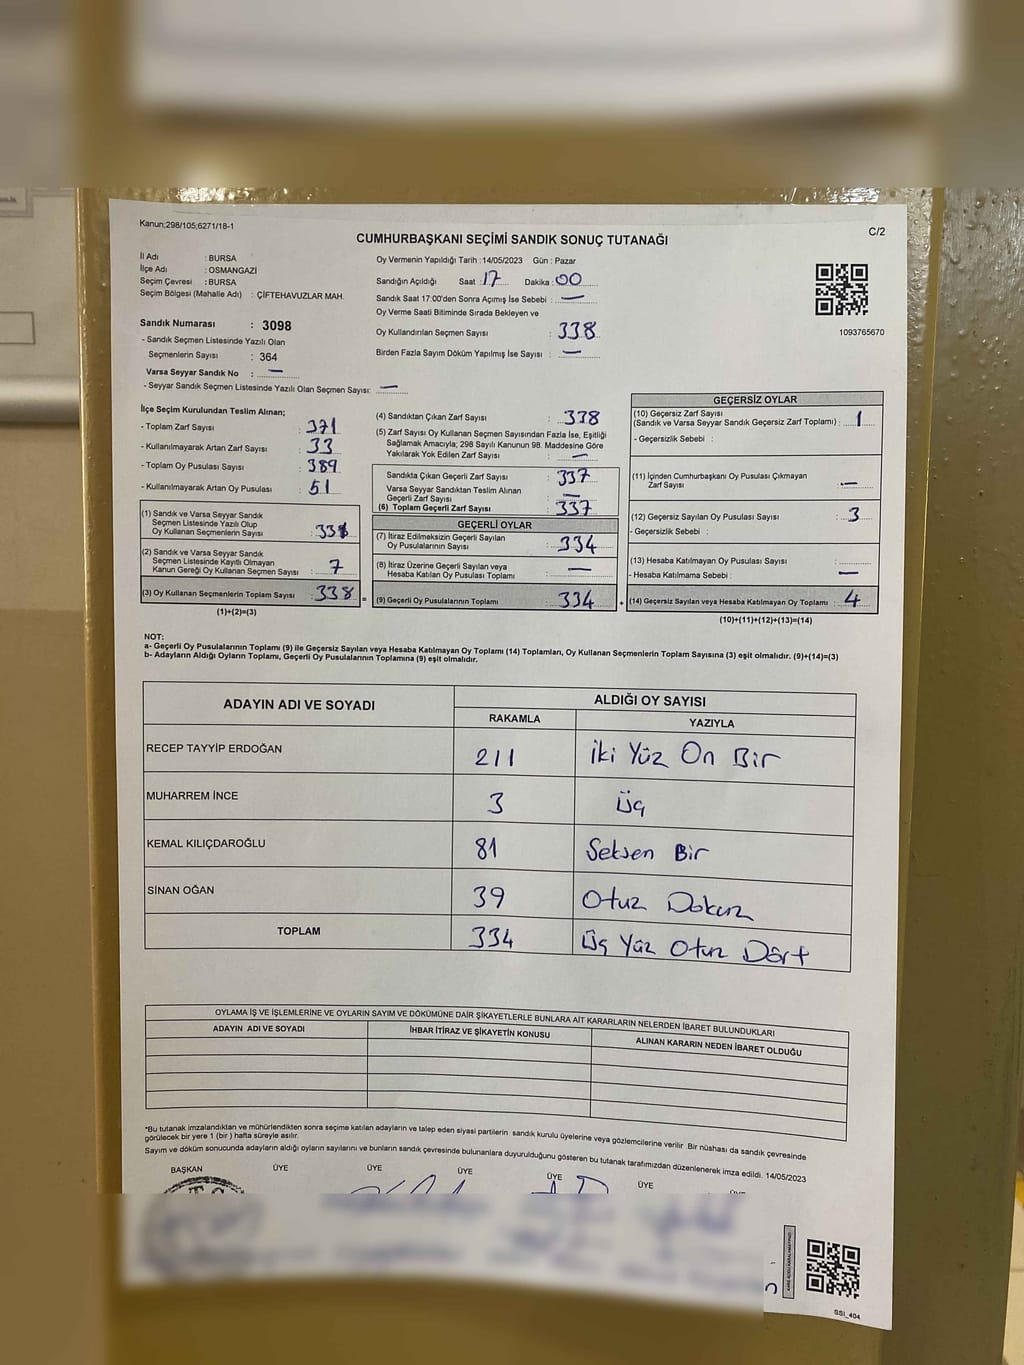 Kanun;298/105;6271/18-1
C/2
CUMHURBAŞKANI SEÇİMİ SANDIK SONUÇ TUTANAĞI
İl Adı : BURSA
İlçe Adı : OSMANGAZİ
Seçim Çevresi : BURSA
Seçim Bölgesi (Mahalle Adı) : ÇİFTEHAVUZLAR MAH.
Sandık Numarası : 3098
- Sandık Seçmen Listesinde Yazılı Olan
Seçmenlerin Sayısı : 364
Varsa Seyyar Sandık No : —
- Seyyar Sandık Seçmen Listesinde Yazılı Olan Seçmen Sayısı: —
Oy Vermenin Yapıldığı Tarih :14/05/2023 Gün : Pazar
Sandığın Açıldığı Saat :17 Dakika :00
Sandık Saat 17:00'den Sonra Açımış İse Sebebi : —
Oy Verme Saati Bitiminde Sırada Bekleyen ve
Oy Kullandırılan Seçmen Sayısı : 338
Birden Fazla Sayım Döküm Yapılmış İse Sayısı : —
1093765670
İlçe Seçim Kurulundan Teslim Alınan;
- Toplam Zarf Sayısı : 371
- Kullanılmayarak Artan Zarf Sayısı : 33
- Toplam Oy Pusulası Sayısı : 389
- Kullanılmayarak Artan Oy Pusulası : 51
(1) Sandık ve Varsa Seyyar Sandık
Seçmen Listesinde Yazılı Olup
Oy Kullanan Seçmenlerin Sayısı :
(2) Sandık ve Varsa Seyyar Sandık
Seçmen Listesinde Kayıtlı Olmayan
Kanun Gereği Oy Kullanan Seçmen Sayısı : 7
(3) Oy Kullanan Seçmenlerin Toplam Sayısı : 338
(1)+(2)=(3)
(4) Sandıktan Çıkan Zarf Sayısı : 338
(5) Zarf Sayısı Oy Kullanan Seçmen Sayısından Fazla İse, Eşitliği
Sağlamak Amacıyla; 298 Sayılı Kanunun 98. Maddesine Göre
Yakılarak Yok Edilen Zarf Sayısı : —
Sandıkta Çıkan Geçerli Zarf Sayısı : 337
Varsa Seyyar Sandıktan Teslim Alınan
Geçerli Zarf Sayısı : —
(6) Toplam Geçerli Zarf Sayısı : 337
GEÇERLİ OYLAR
(7) İtiraz Edilmeksizin Geçerli Sayılan
Oy Pusulalarının Sayısı : 334
(8) İtiraz Üzerine Geçerli Sayılan veya
Hesaba Katılan Oy Pusulası Toplamı : —
(9) Geçerli Oy Pusulalarının Toplamı : 334
GEÇERSİZ OYLAR
(10) Geçersiz Zarf Sayısı
(Sandık ve Varsa Seyyar Sandık Geçersiz Zarf Toplamı) : 1
- Geçersizlik Sebebi :
(11) İçinden Cumhurbaşkanı Oy Pusulası Çıkmayan
Zarf Sayısı : —
(12) Geçersiz Sayılan Oy Pusulası Sayısı : 3
- Geçersizlik Sebebi :
(13) Hesaba Katılmayan Oy Pusulası Sayısı :
- Hesaba Katılmama Sebebi : —
(14) Geçersiz Sayılan veya Hesaba Katılmayan Oy Toplamı : 4
(10)+(11)+(12)+(13)=(14)
NOT:
a- Geçerli Oy Pusulalarının Toplamı (9) ile Geçersiz Sayılan veya Hesaba Katılmayan Oy Toplamı (14) Toplamları, Oy Kullanan Seçmenlerin Toplam Sayısına (3) eşit olmalıdır. (9)+(14)=(3)
b- Adayların Aldığı Oyların Toplamı, Geçerli Oy Pusulalarının Toplamına (9) eşit olmalıdır.
ADAYIN ADI VE SOYADI ALDIĞI OY SAYISI
RAKAMLA YAZIYLA
RECEP TAYYİP ERDOĞAN 211 İki Yüz On Bir
MUHARREM İNCE 3 Üç
KEMAL KILIÇDAROĞLU 81 Seksen Bir
SİNAN OĞAN 39 Otuz Dokuz
TOPLAM 334 Üç Yüz Otuz Dört
OYLAMA İŞ VE İŞLEMLERİNE VE OYLARIN SAYIM VE DÖKÜMÜNE DAİR ŞİKAYETLERLE BUNLARA AİT KARARLARIN NELERDEN İBARET BULUNDUKLARI
ADAYIN ADI VE SOYADI İHBAR İTİRAZ VE ŞİKAYETİN KONUSU ALINAN KARARIN NEDEN İBARET OLDUĞU
*Bu tutanak imzalandıktan ve mühürlendikten sonra seçime katılan adayların ve talep eden siyasi partilerin sandık kurulu üyelerine veya gözlemcilerine verilir. Bir nüshası da sandık çevresinde
görülecek bir yere 1 (bir ) hafta süreyle asılır.
Sayım ve döküm sonucunda adayların aldığı oyların sayılarını ve bunların sandık çevresinde bulunanlara duyurulduğunu gösteren bu tutanak tarafımızdan düzenlenerek imza edildi. 14/05/2023
BAŞKAN ÜYE ÜYE ÜYE ÜYE ÜYE ÜYE
SSI_404